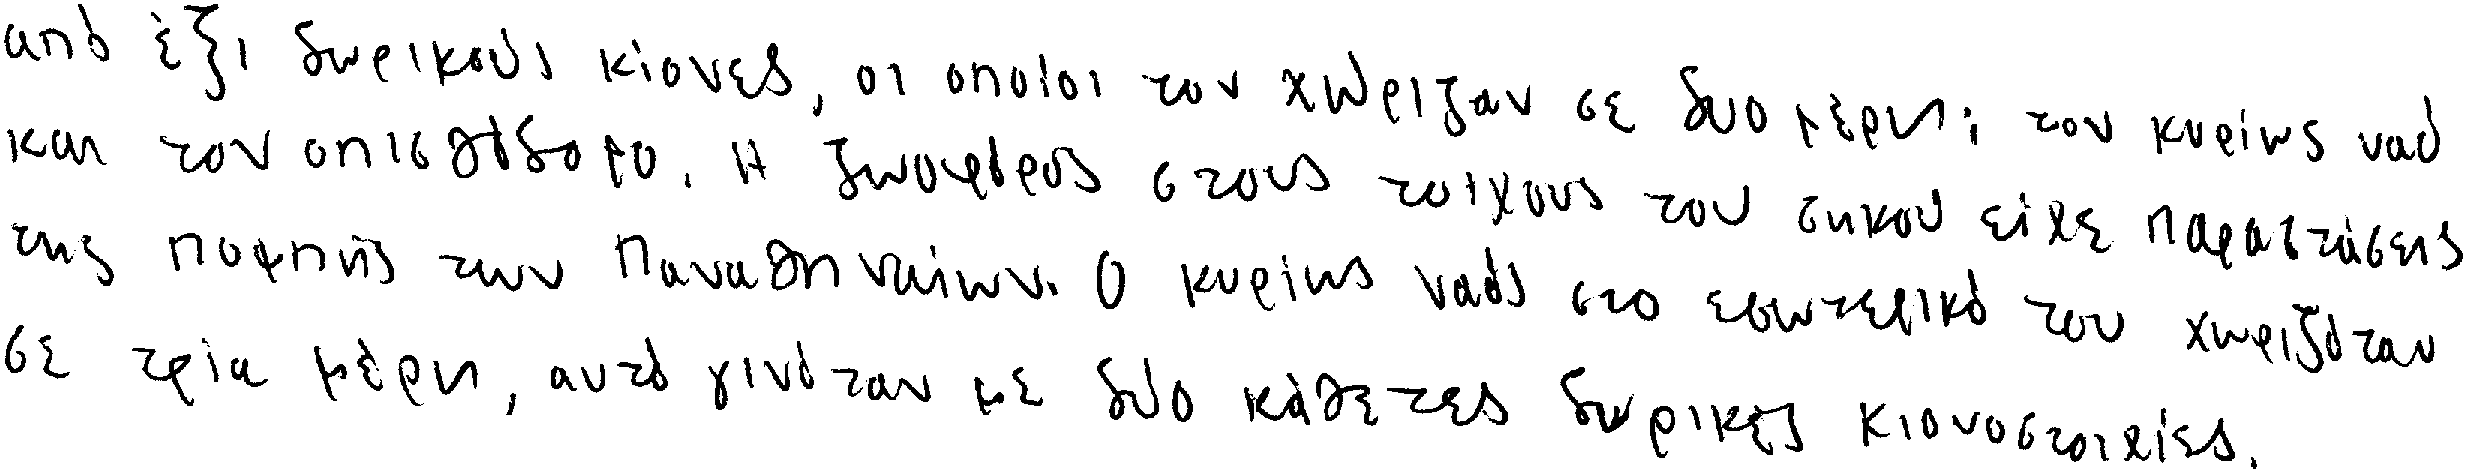 από έξι δωρικούς κίονες, οι οποίοι τον χώριζαν σε δυο μέρη; τον κυρίως ναό
και τον οπισθόδομο. Η ζωοφόρος στους τοίχους του σηκού είχε παραστάσεις
της πομπής των Παναθηναίων. Ο κυρίως ναός στο εσωτερικό του χωριζόταν
σε τρία μέρη, αυτό γινόταν με δύο κάθετες δωρικές κιονοστοιχίες.